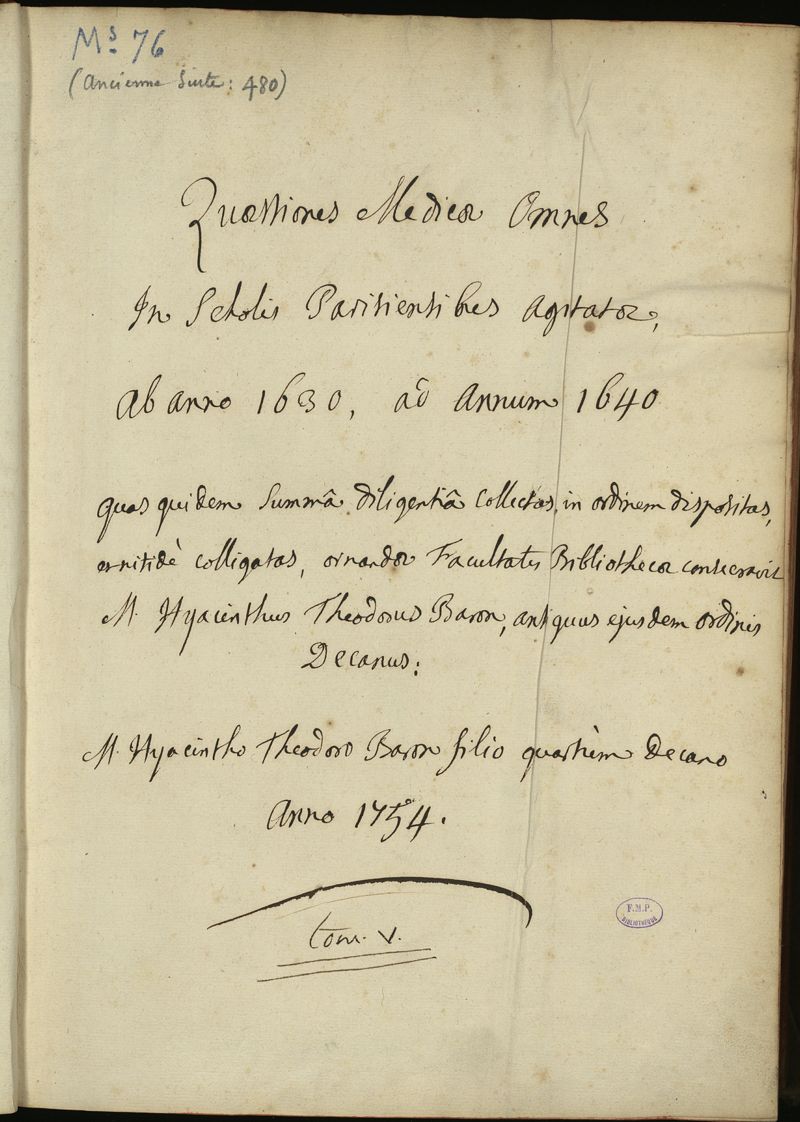 Ms 76
(Ancienne Suite: 480)
Quæstiones Medicæ Omnes
In Scholis Parisiensibus agitatæ,
ab anno 1630, ad annum 1640
quas quidem Summâ diligentiâ collectas, in ordinem dispositas,
et nitidè colligatas, ornandæ Facultatis Bibliothecæ consecravit
M. Hyacinthus Theodorus Baron, antiquus ejusdem ordinis
Decanus;
M. Hyacintho Theodoro Baron filio quartùm Decano
Anno 1754.
tom. V.
F.M.P.
BIBLIOTHÈQUE